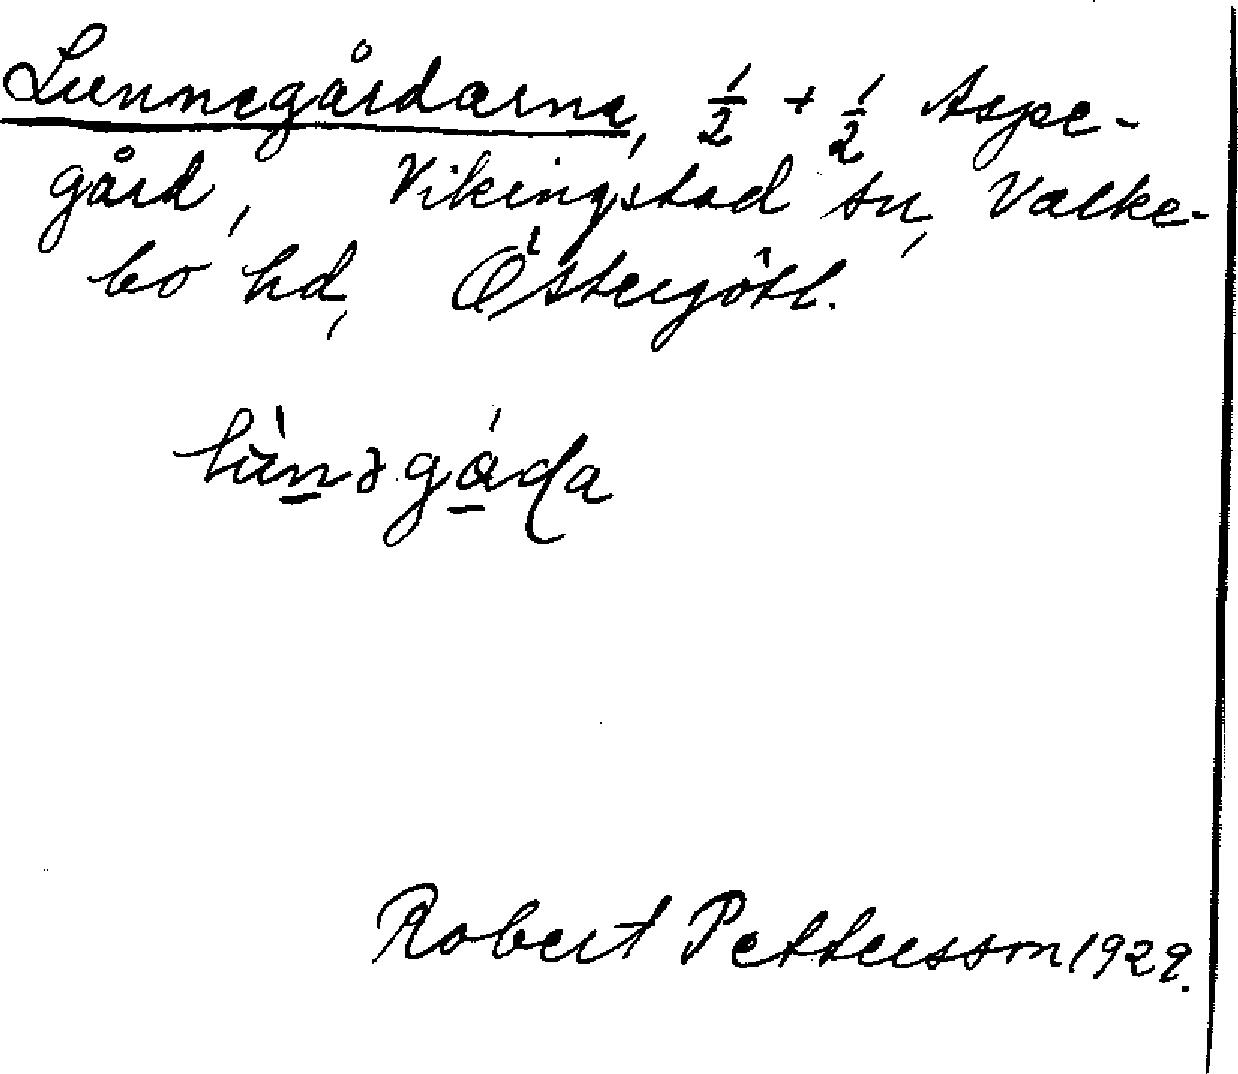 Lunnegårdarna, ½ + ½ Aspe-
gård, Vikingstad sn, Valke-
bo hd, Östergötl.
lùnəgáɖa
Robert Pettersson 1929.